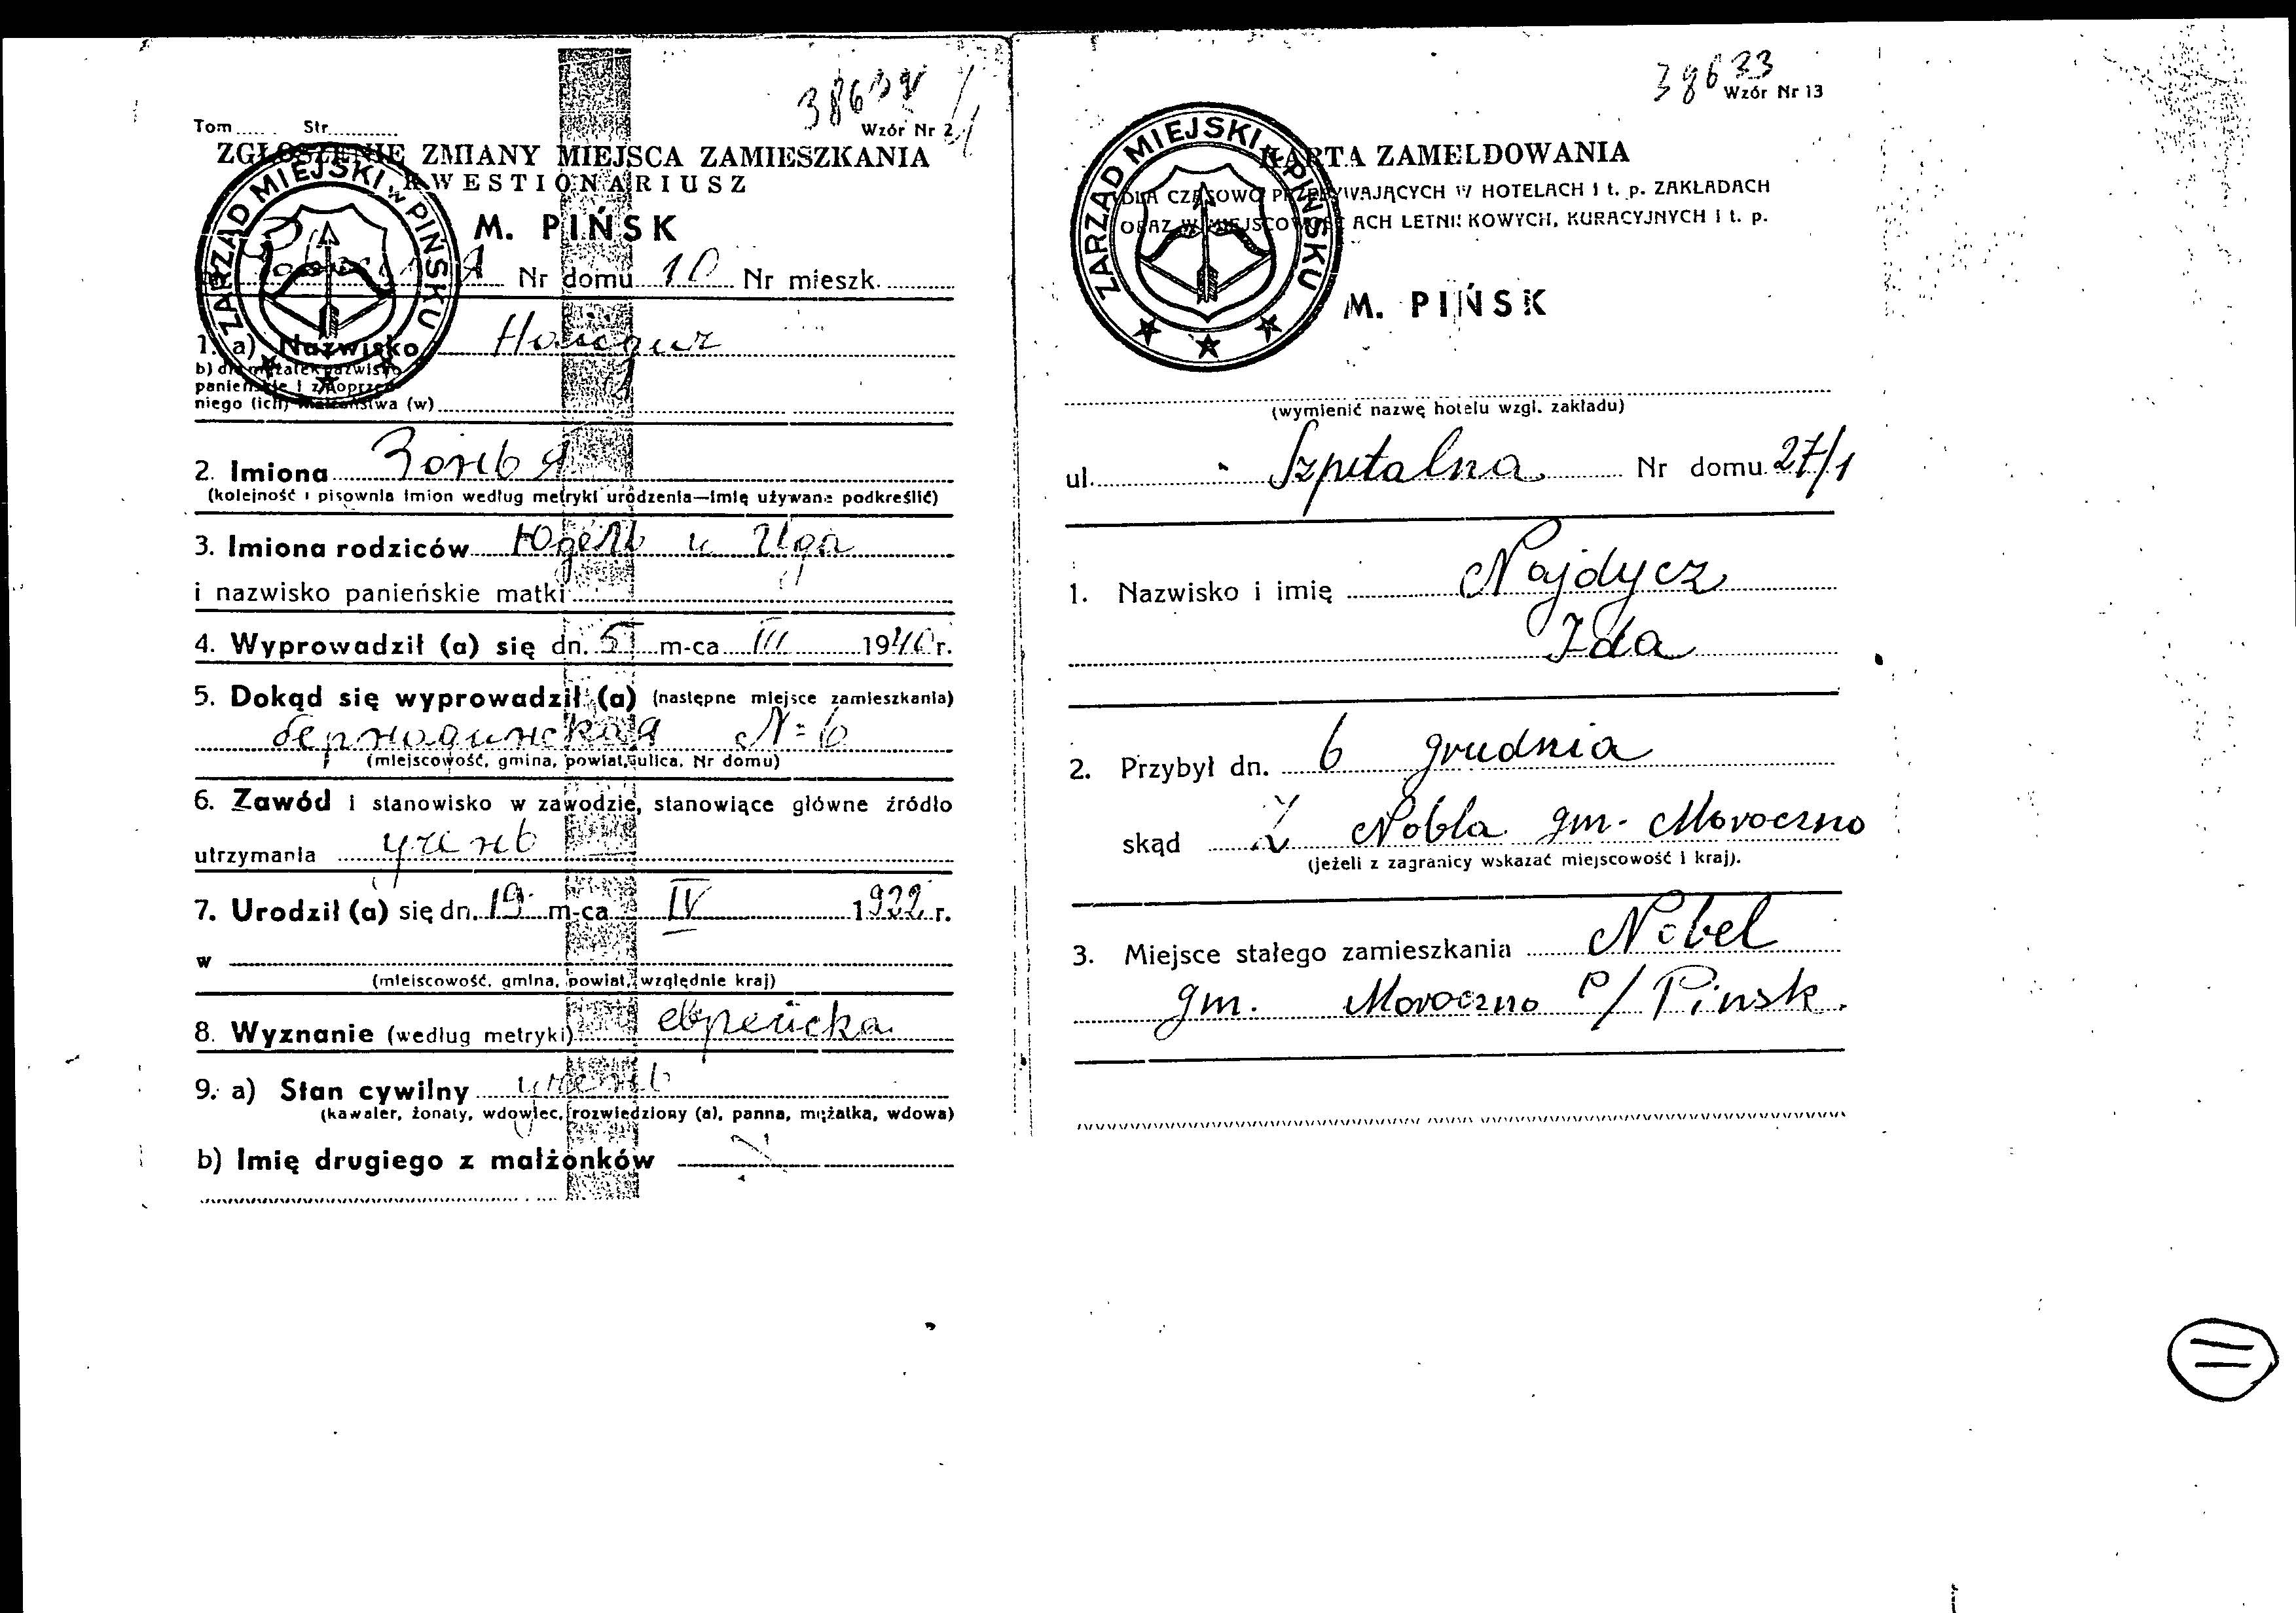 Tom..... Str...........
Wzór Nr 2
ZGŁOSZENIE ZMIANY MIEJSCA ZAMIESZKANIA
KWESTIONARIUSZ
ZARZĄD MIEJSKI w PIŃSKU
M. PIŃSK
Nr domu 10 Nr mieszk.
1. a) Nazwisko
b) dla mężatek nazwisko
panieńskie i z poprzed-
niego (ich) małżeństwa (w)
2. Imiona
(kolejność i pisownia imion według metryki urodzenia—imię używane podkreślić)
3. Imiona rodziców Югель и
i nazwisko panieńskie matki
4. Wyprowadził (a) się dn. 5 m-ca III 1940 r.
5. Dokąd się wyprowadził (a) (następne miejsce zamieszkania)
N=6
(miejscowość, gmina, powiat, ulica, Nr domu)
6. Zawód i stanowisko w zawodzie, stanowiące główne źródło
utrzymania
7. Urodził (a) się dn. 19 m-ca IV 1922 r.
w
(miejscowość, gmina, powiat, względnie kraj)
8. Wyznanie (według metryki) еврейска
9. a) Stan cywilny
(kawaler, żonaty, wdowiec, rozwiedziony (a), panna, mężatka, wdowa)
b) Imię drugiego z małżonków
38633
Wzór Nr 13
KARTA ZAMELDOWANIA
DLA CZASOWO PRZEBYWAJĄCYCH W HOTELACH I t. p. ZAKŁADACH
ORAZ W MIEJSCOWOŚCIACH LETNISKOWYCH, KURACYJNYCH I t. p.
ZARZĄD MIEJSKI w PIŃSKU
M. PIŃSK
(wymienić nazwę hotelu wzgl. zakładu)
ul. Szpitalna Nr domu 27/1
1. Nazwisko i imię Najdycz
Ida
2. Przybył dn. 6 grudnia
skąd Z Nobla gm. Moroczno
(jeżeli z zagranicy wskazać miejscowość i kraj).
3. Miejsce stałego zamieszkania Nobel
gm. Moroczno p/Pinsk.